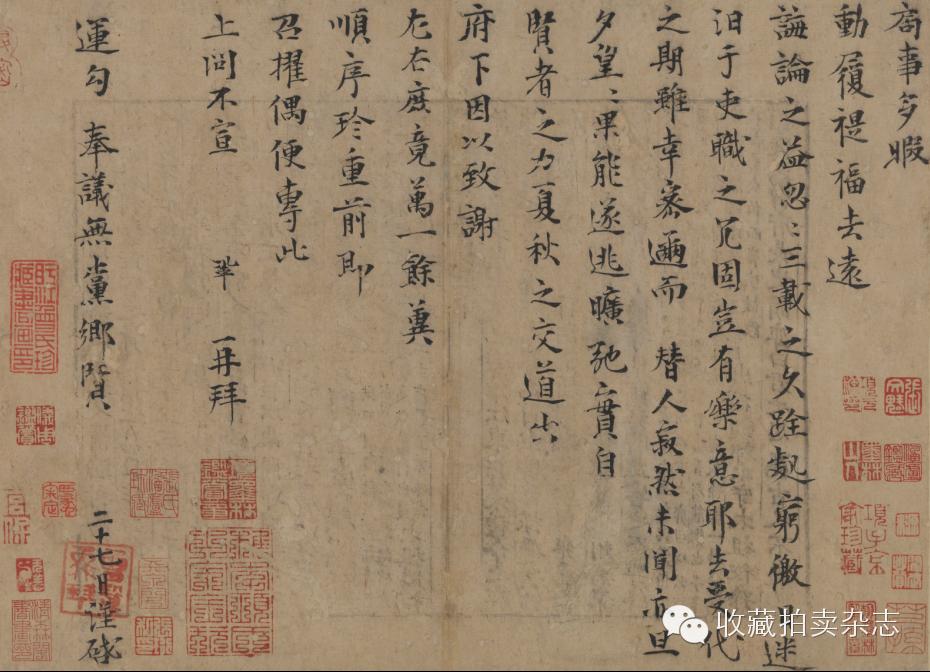 局事多暇
動履禔福去遠
誨論之益忽〻三載之久跧處窮徼日迷
汩于吏職之冗固豈有樂意耶去受代
之期雖幸密邇而替人寂然未聞亦旦
夕望〻果能遂逃曠弛實自
賢者之力夏秋之交道出
府下因以致謝
左右庶竟萬一餘冀
順序珍重前即
召擢偶便專此
上問不宣 鞏 再拜
運勾 奉議無黨鄉賢 二十七日謹啓
收藏拍卖杂志